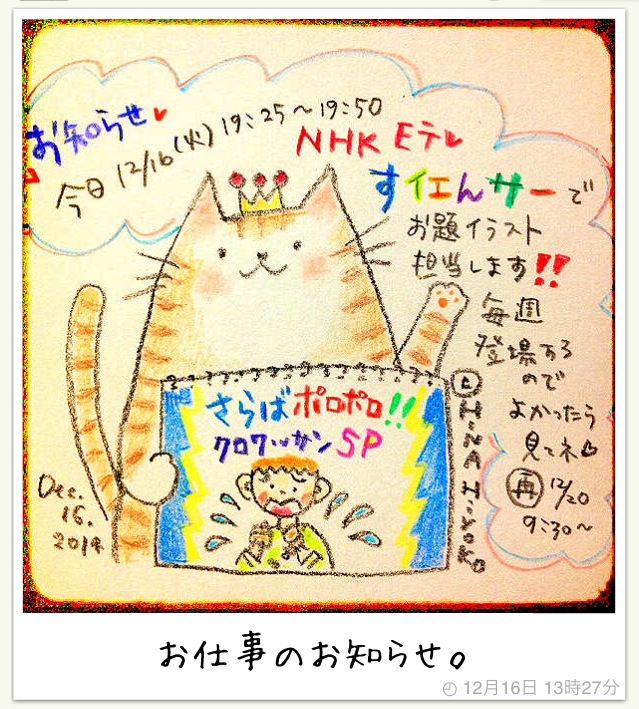 お知らせ
今日 12/16(火) 19:25〜19:50
NHK Eテレ
すイエんサーで
お題イラスト
担当します!!
毎週
登場する
ので
よかったら
見てネ
再 12/20
9:30〜
さらばポロポロ!!
クロワッサンSP
Dec.
16.
2014
© HiNA Hiyoko
お仕事のお知らせ。
12月16日 13時27分